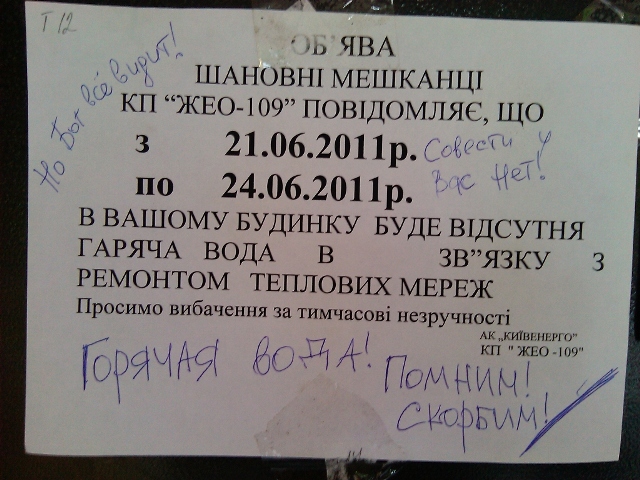 Т 12
Но Бог всё видит!
ОБ'ЯВА
ШАНОВНІ МЕШКАНЦІ
КП "ЖЕО-109" ПОВІДОМЛЯЄ, ЩО
з 21.06.2011р.
по 24.06.2011р.
Совести у
Вас Нет!
В ВАШОМУ БУДИНКУ БУДЕ ВІДСУТНЯ
ГАРЯЧА ВОДА В ЗВ"ЯЗКУ З
РЕМОНТОМ ТЕПЛОВИХ МЕРЕЖ
Просимо вибачення за тимчасові незручності
АК „КИЇВЕНЕРГО"
КП " ЖЕО -109"
ГОРЯЧАЯ ВОДА!
ПОМНИМ!
СКОРБИМ!